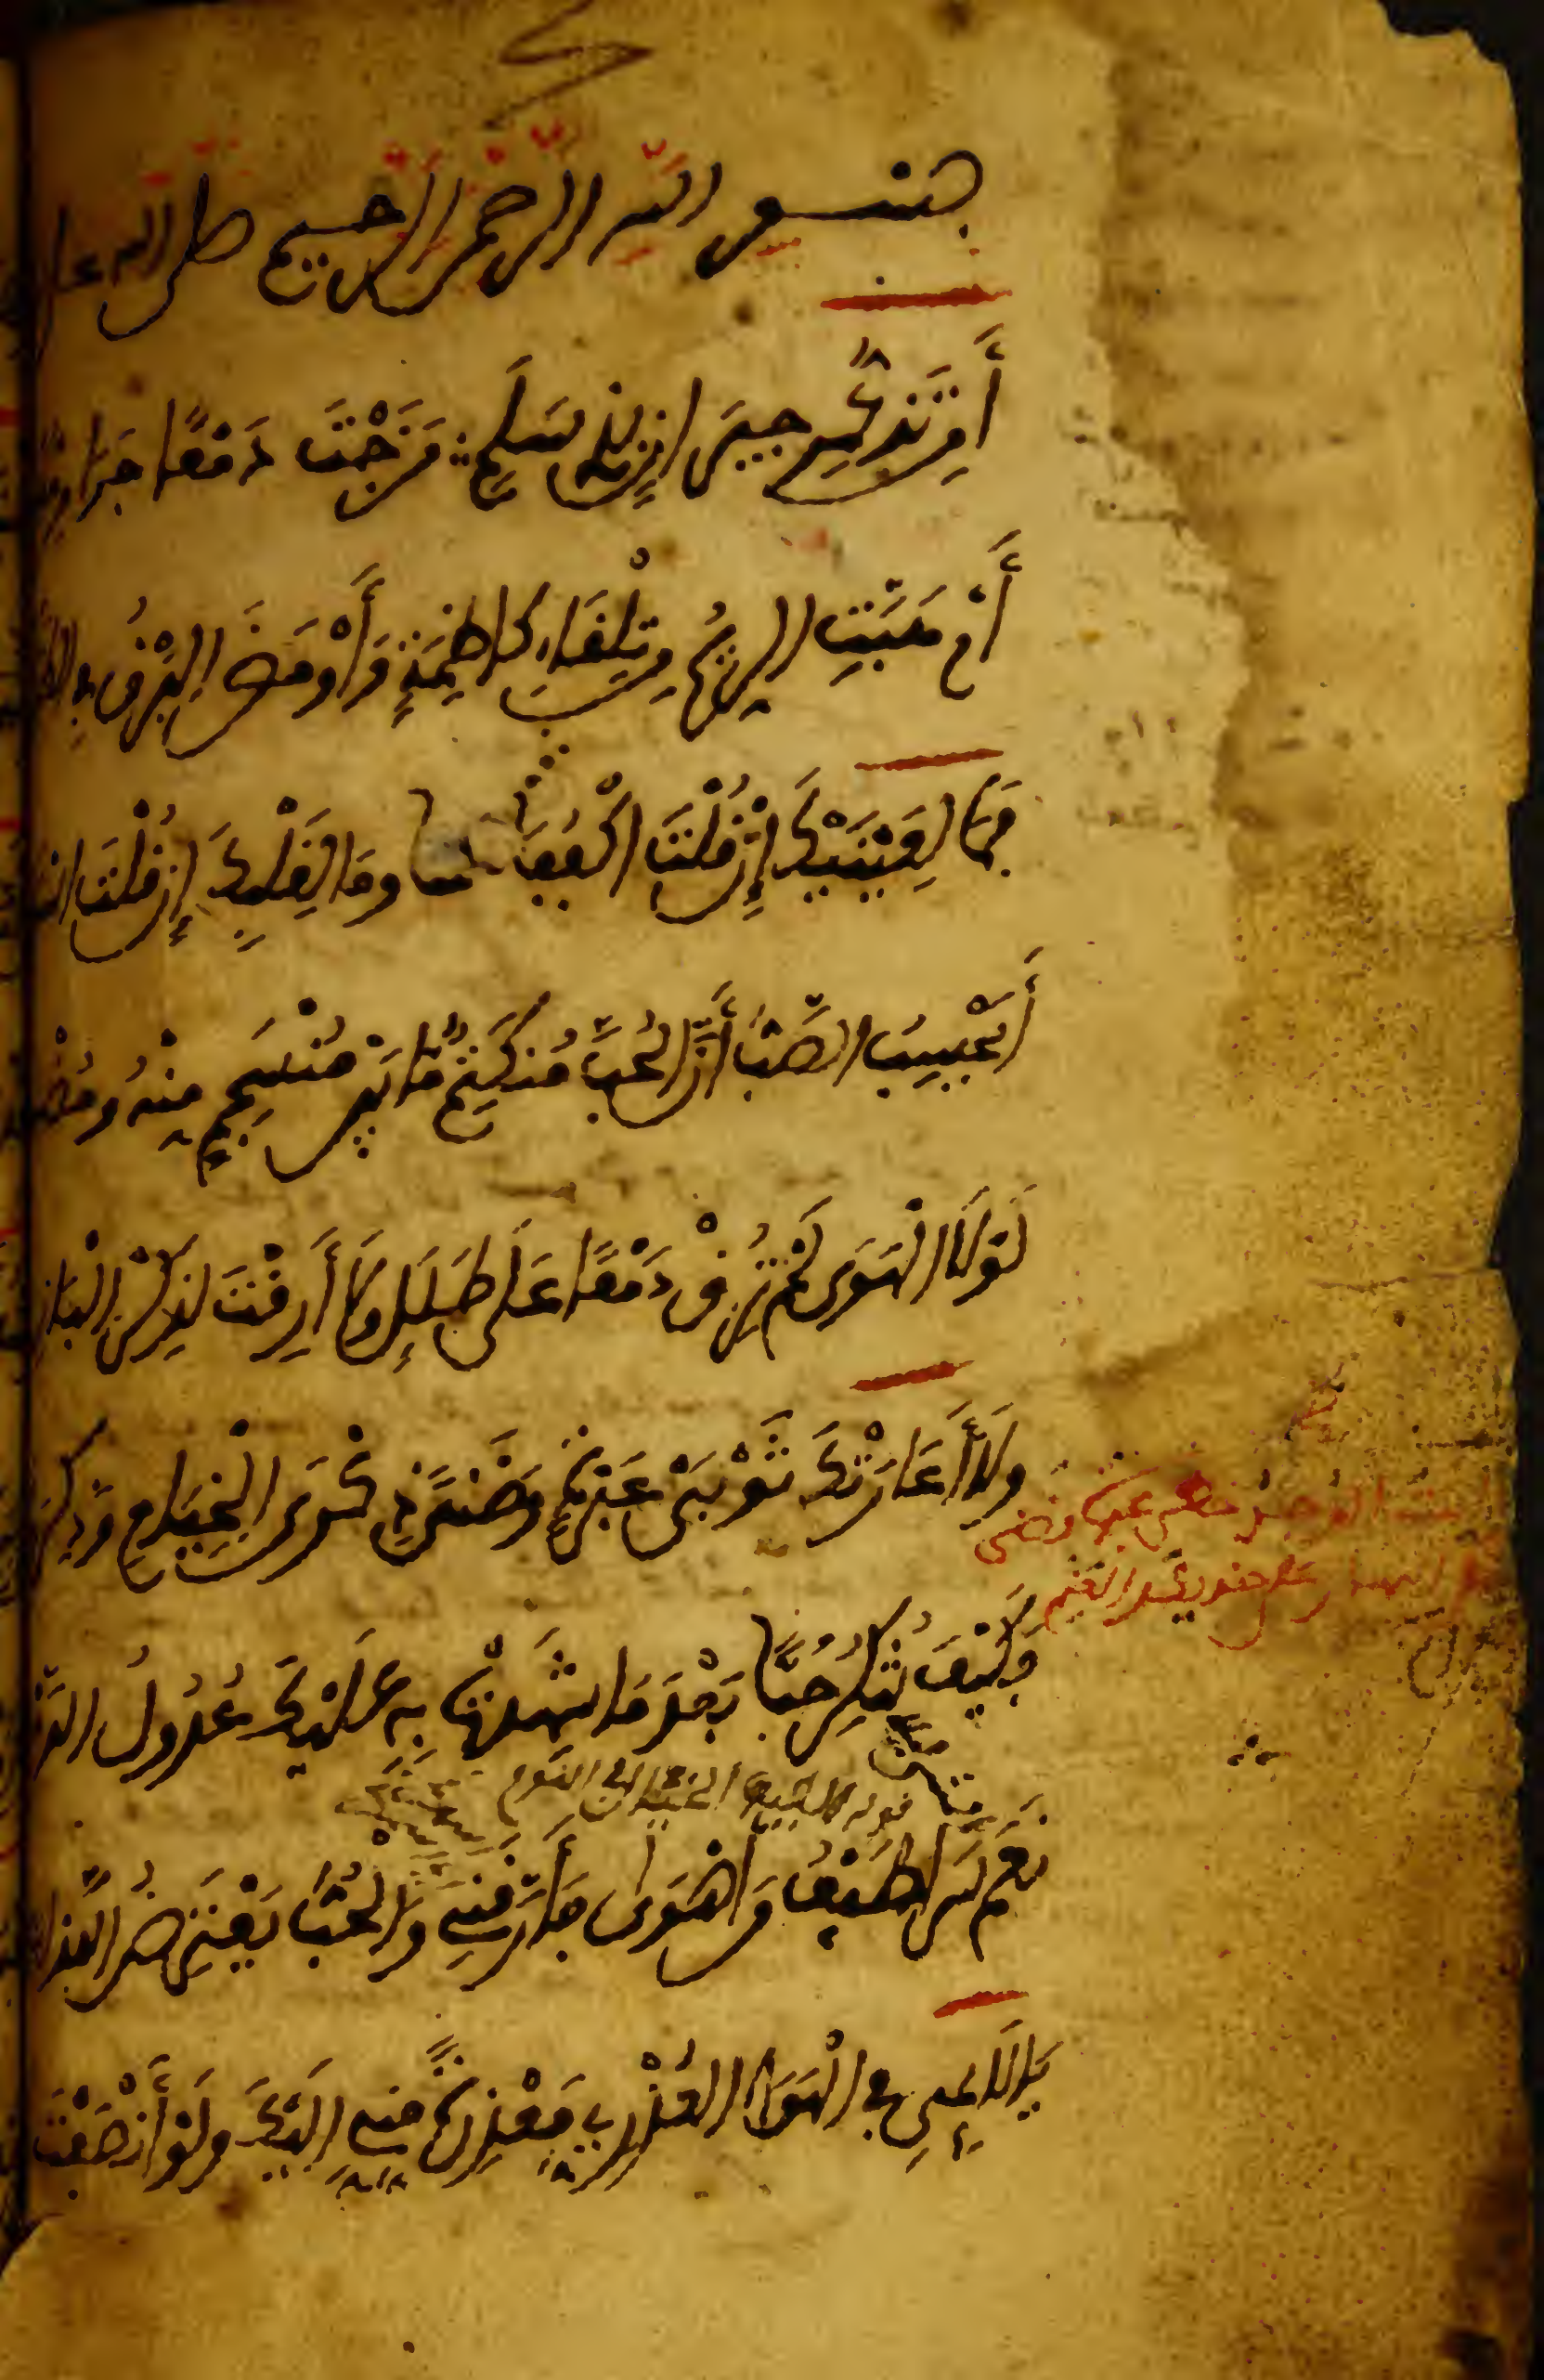 بسم الله الرحمن الرحيم صلى الله على
أَمِن تَذَكُّرِ جِيرَانٍ بِذِي سَلَمٍ مَزَجْتَ دَمْعًا جَرَا
أَمْ هَبَّتِ الرِّيحُ مِن تِلْقَاءِ كَاظِمَةٍ وَأَوْمَضَ الْبَرْقُ فِي
فَمَا لِعَيْنَيْكَ إِن قُلْتَ اكْفُفَا هَمَتَا وَمَا لِقَلْبِكَ إِن قُلْتَ
أَيَحْسِبُ الصَّبُّ أَنَّ الْحُبَّ مُنكَتِمٌ مَّا بَيْنَ مُنْسَجِمٍ مِنْهُ وَمُضْ
لَوْلَا الْهَوَى لَمْ تُرِقْ دَمْعًا عَلَى طَلَلٍ وَلَا أَرِقْتَ لِذِكْرِ الْبَانِ
وَلَا أَعَارَتْكَ ثَوْبَيْ عَبْرَةٍ وَضَنًى ذِكْرَى الْخِيَامِ وَذِكْرَ
فَكَيْفَ تُنكِرُ حُبًّا بَعْدَ مَا شَهِدَتْ بِهِ عَلَيْكَ عُدُولُ الدَّ
قوله الطيف الخيال في النوم
نَعَمْ سَرَى طَيْفُ مَنْ أَهْوَى فَأَرَّقَنِي وَالْحُبُّ يَعْتَرِضُ اللَّذَا
يَا لَائِمِي فِي الْهَوَا الْعُذْرِيِّ مَعْذِرَةً مِنِّي إِلَيْكَ وَلَوْ أَنْصَفْتَ